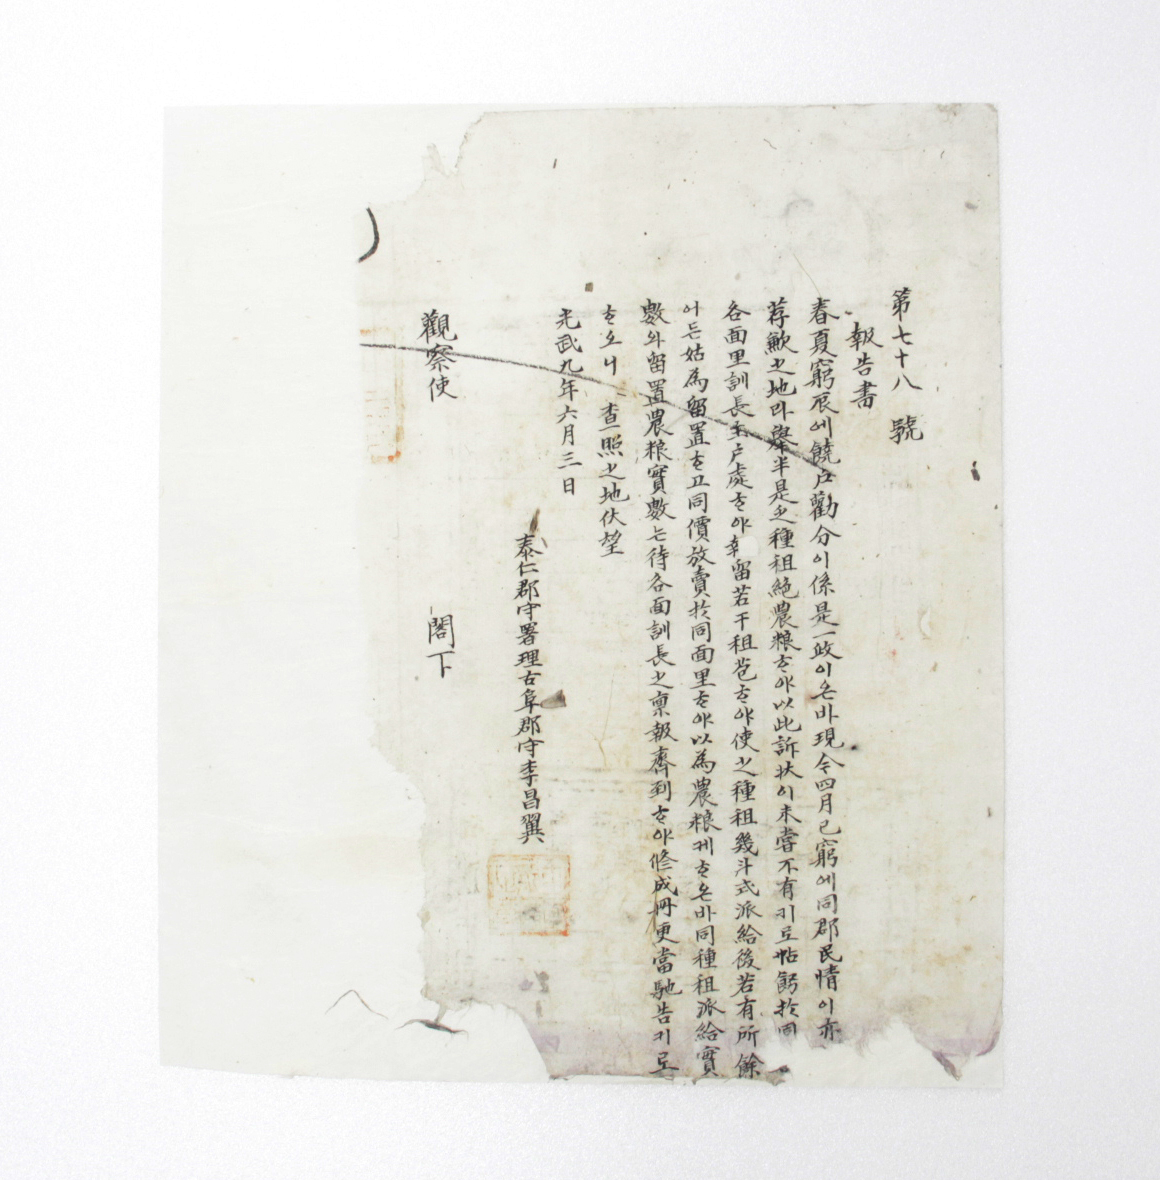 第七十八 號
報告書
春夏窮辰에饒户勸分이係是一政이온바現今四月已窮에同郡民情이亦
荐歉之地라擧半是乏種租絶農粮ᄒᆞ야以此訴狀이未嘗不有키로帖飭於同
各面里訓長主户處ᄒᆞ야幸留若干租苞ᄒᆞ야使之種租幾斗式派給後若有所餘
어든姑為留置ᄒᆞ고同價放賣於同面里ᄒᆞ야以為農粮케ᄒᆞ온바同種租派給實
數와留置農粮實數는待各面訓長之稟報齊到ᄒᆞ야修成冊更當馳告키로
ᄒᆞ오니 查照之地伏望
光武九年六月三日
泰仁郡守署理古阜郡守李昌翼
觀察使 閣下